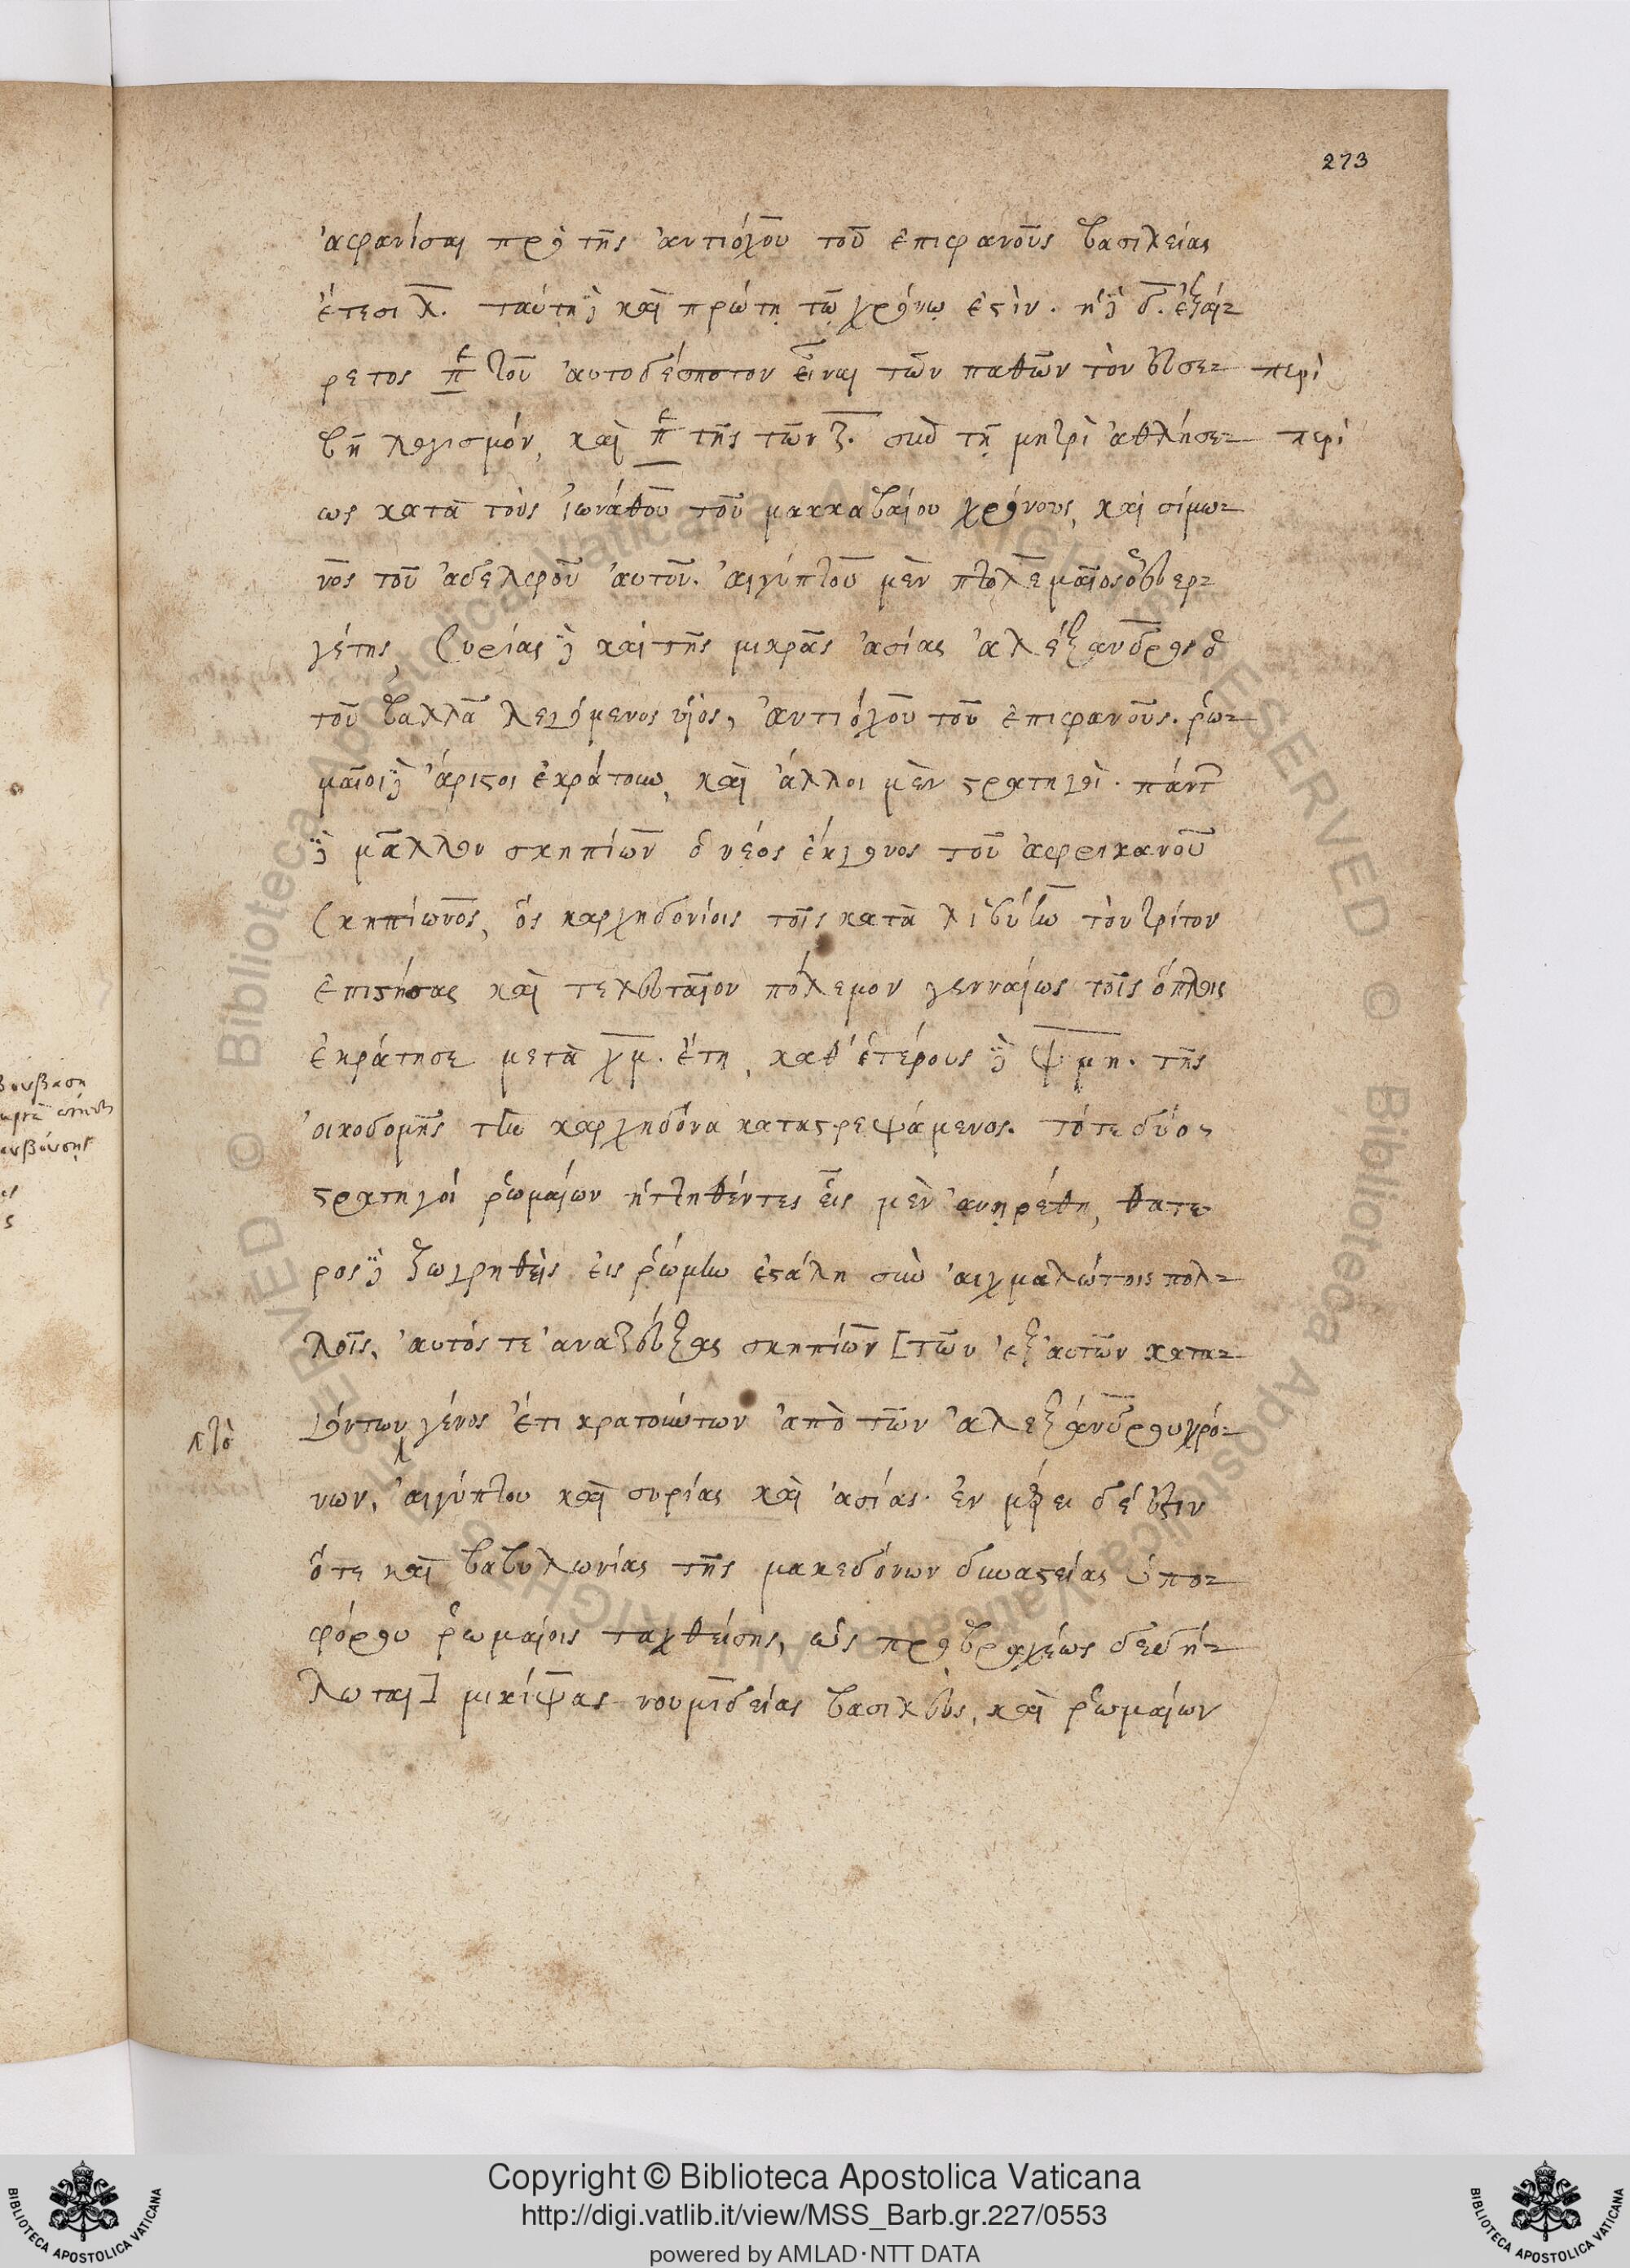 273
ἀφανίσαι πρὸ τῆς ἀντιόχου τοῦ ἐπιφανοῦς βασιλείας
ἔτεσι λ. ταύτη δὲ καὶ πρώτη τῷ χρόνῳ ἐστὶν. ἡ δὲ δ. ἐξαί-
ρετος π τοῦ αὐτοδέσποτον εἶναι τῶν παθῶν τὸν εὐσε- περὶ
βῆ λογισμόν, καὶ π τῆς τῶν ζ. σὺν τῇ μητρὶ ἀθλήσε- περὶ
ως κατὰ τοὺς ἰωνάθου τοῦ μακκαβαίου χρόνους, καὶ σίμω-
νος τοῦ ἀδελφοῦ αὐτοῦ. αἰγύπτου μὲν πτολεμαῖος ὁ εὐερ-
γέτης, συρίας δὲ καὶ τῆς μικρᾶς ἀσίας ἀλέξανδρος ὁ
τοῦ βαλλᾶ λεγόμενος υἱὸς, ἀντιόχου τοῦ ἐπιφανοῦς. ῥω-
μαῖοι δὲ ἄριστοι ἐκράτουν, καὶ ἄλλοι μὲν στρατηγοὶ. πάντ
δὲ μᾶλλον σκηπίων ὁ νέος ἔκγονος τοῦ ἀφρικανοῦ
σκηπίωνος, ὃς καρχηδονίοις τοῖς κατὰ λιβύην τὸν τρίτον
ἐπιστήσας καὶ τελευταῖον πόλεμον γενναίως τοῖς ὅπλοις
ἐκράτησε μετὰ χμ. ἔτη, καθ' ἑτέρους δὲ ψμη. τῆς
οἰκοδομῆς τὴν καρχηδόνα καταστρεψάμενος. τότε δύο
στρατηγοί ῥωμαίων ἡττηθέντες εἷς μὲν ἀνῃρέθη, θατε
ρος δὲ ζωγρηθεὶς εἰς ῥώμην ἐστάλη σὺν αἰχμαλώτοις πολ-
λοῖς. αὐτός τε ἀναζεύξας σκηπίων [τῶν ἐξ αὐτῶν κατα-
γόντων γένος ἔτι κρατούντων ἀπὸ τῶν ἀλεξάνδρου χρό-
νων, αἰγύπτου καὶ συρίας καὶ ἀσίας. ἐν μέρει δέ ἐστιν
ὅτε καὶ βαβυλωνίας τῆς μακεδόνων δυναστείας ὑπο-
φόρου ῥωμαίοις ταχθείσης, ὡς πρὸ βραχέως δεδή-
λωται] μικίψας νουμιδείας βασιλεὺς, καὶ ῥωμαίων
Copyright © Biblioteca Apostolica Vaticana
http://digi.vatlib.it/view/MSS_Barb.gr.227/0553
powered by AMLAD·NTT DATA